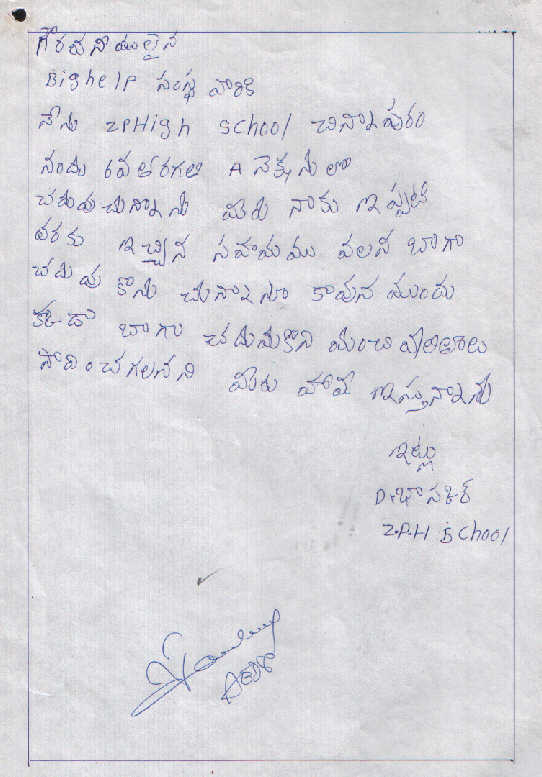 గౌరవనీయులైన
Bighelp సంస్థ వారికి
నేను ZPHigh School చిన్నాపురం
నందు 8వ తరగతి A సెక్షను లో
చదువుచున్నాను మీరు నాకు ఇప్పటి
వరకు ఇచ్చిన సహాయము వలన బాగా
చదువు కొను చున్నాను కావున ముందు
కూడా బాగా చదువుకొని మంచి ఫలితాలు
సాధించగలనని మీకు హామీ ఇస్తున్నాను
ఇట్లు
D. భాస్కర్
Z.P.H School